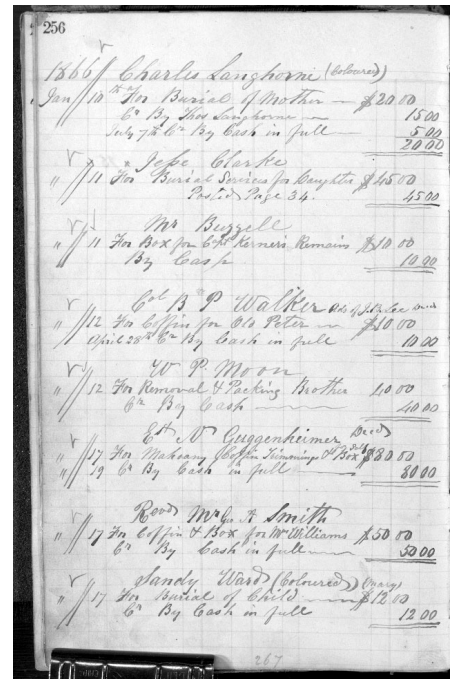 256
1866 Charles Langhorne (Coloured)
Jan 10th For Burial of Mother $20 00
Cr By Thos Langhorne 15 00
July 7th Cr By Cash in full 5 00
20 00
Jesse Clarke
" 11 For Burial Services for Daughter $45 00
Posted Page 34. 45 00
Mr Buzzell
" 11 For Box for Remains $10 00
By Cash 10 00
Col B P Walker of J. B. Lee Decd
" 12 For Coffin for Old Peter $10 00
April 28th Cr By Cash in full 10 00
W. P. Moon
" 12 For Removal & Packing Brother 40 00
Cr By Cash 40 00
Est N Guggenheimer Decd
" 17 For Mahogany Coffin Trimmings & Box $80 00
" 19 Cr By Cash in full 80 00
Revd Mr Geo A Smith
" 17 For Coffin & Box for Mr Williams $50 00
Cr By Cash in full 50 00
Sandy Ward (Coloured)
" 17 For Burial of Child $12 00
Cr By Cash in full 12 00
267